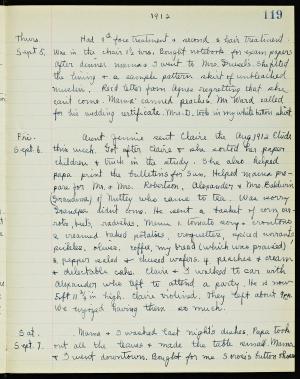 1912
119
Thurs. Had 1st face treatment & second hair treatment.
Sept 5. Was in the chair 1½ hrs. Bought notebooks for exam papers
after dinner mama & I went to Mrs. Shepfits
the lining & a sample pattern skirt of unbleached
muslin. Rec'd letter from Agnes regretting that she
can't come. Mama canned peaches. Mr Ward called
for his wedding certificate. Mrs. D. took in my white linen skirt
Fri. Aunt Jennie sent Claire the Aug 1912
Sept. 6. this week. Got after Claire & she sorted her paper
children & trunk in the study. She also helped
papa print the bulletins for Sun. Helped mama pre-
pare for Mr. & Mrs. Robertson, Alexander & Mrs. Baldwin
(Grandma) of Nutley who came to tea. Was sorry
Grandpa didn't come. He sent a basket of corn, car-
rots, beets, radishes. Menu: tomato soup & croutons
& creamed baked potatoes, croquettes, spiced currants
pickles, olives, coffee, my bread (which was praised)
& pepper salad & cheesed wafers, & peaches & cream
& delectable cake. Claire & I walked to car with
Alexander who left to attend a party. He is now
5ft 11½ in high. Claire violined. They left about 9
We enjoyed having them so much.
Sat. Mama & I washed last night's dishes. Papa took
Sept. 7. out all the leaves & made the table small. Mama
& I went downtown. Bought for me 3 doz. button